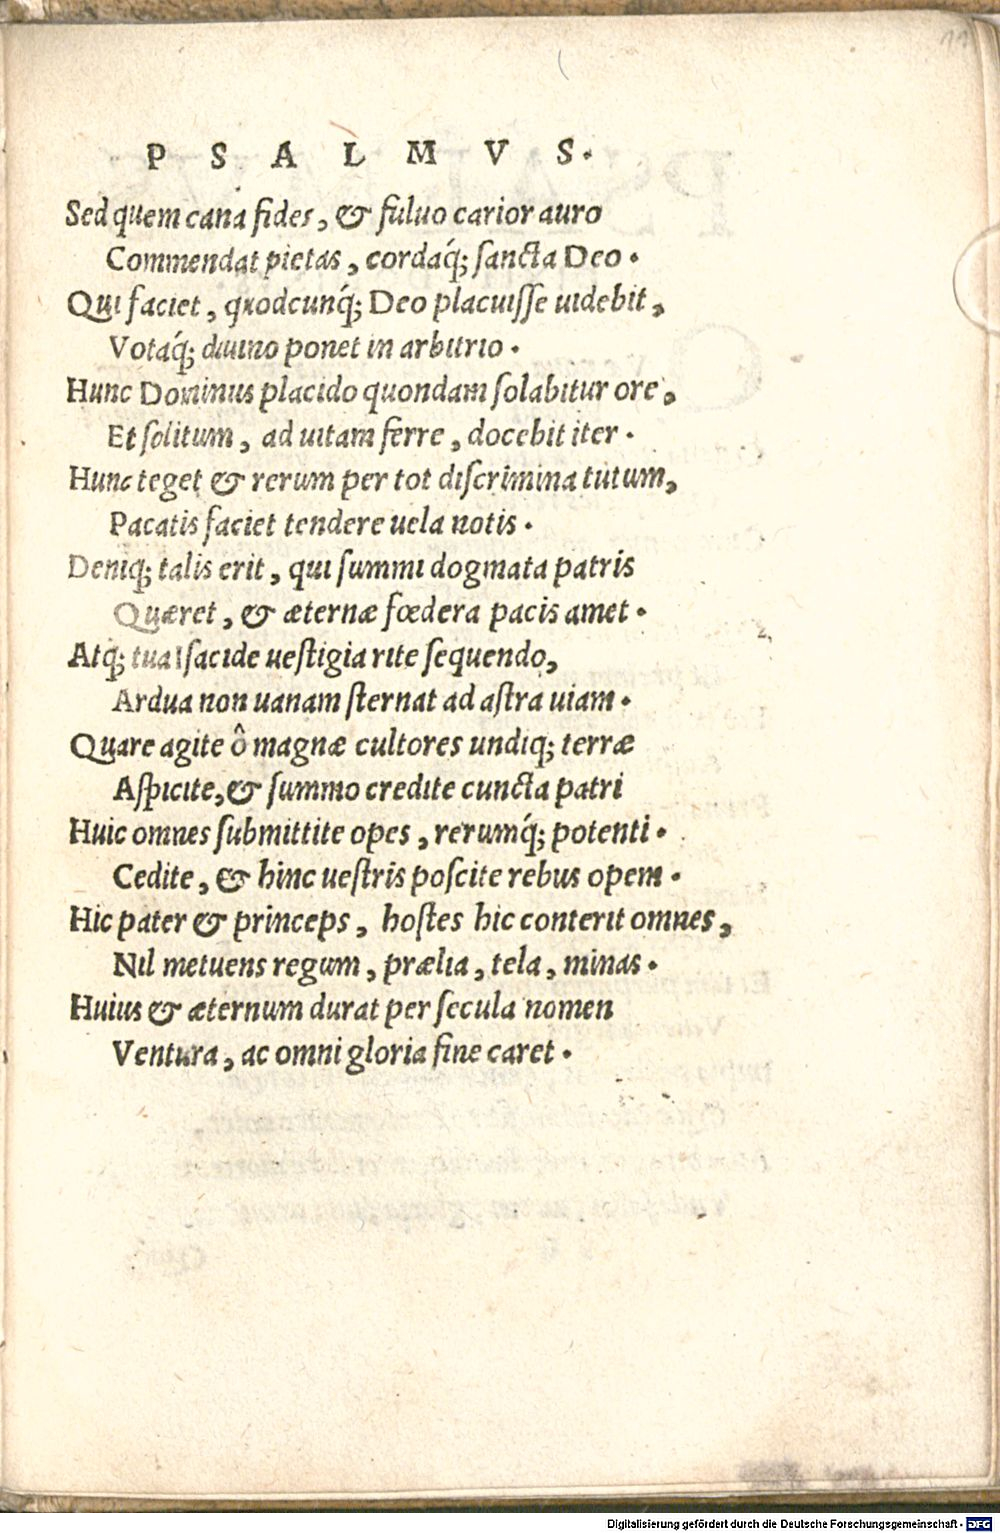 11
P S A L M V S.
Sed quem cana fides, & fuluo carior auro
Commendat pietas, cordaq́; ſancta Deo.
Qui faciet, quodcunq́; Deo placuiſſe uidebit,
Votaq́; diuino ponet in arbitrio.
Hunc Dominus placido quondam ſolabitur ore,
Et ſolitum, ad uitam ferre, docebit iter.
Hunc teget & rerum per tot diſcrimina tutum,
Pacatis faciet tendere uela notis.
Deniq; talis erit, qui ſummi dogmata patris
Quæret, & æternæ fœdera pacis amet.
Atq́; tua Iſacide ueſtigia rite ſequendo,
Ardua non uanam ſternat ad aſtra uiam.
Quare agite ô magnæ cultores undiq; terræ
Aſpicite, & ſummo credite cuncta patri
Huic omnes ſubmittite opes, rerumq́; potenti.
Cedite, & hinc ueſtris poſcite rebus opem.
Hic pater & princeps, hoſtes hic conterit omnes,
Nil metuens regum, prælia, tela, minas.
Huius & æternum durat per ſecula nomen
Ventura, ac omni gloria fine caret.
Digitalisierung gefördert durch die Deutsche Forschungsgemeinschaft - DFG